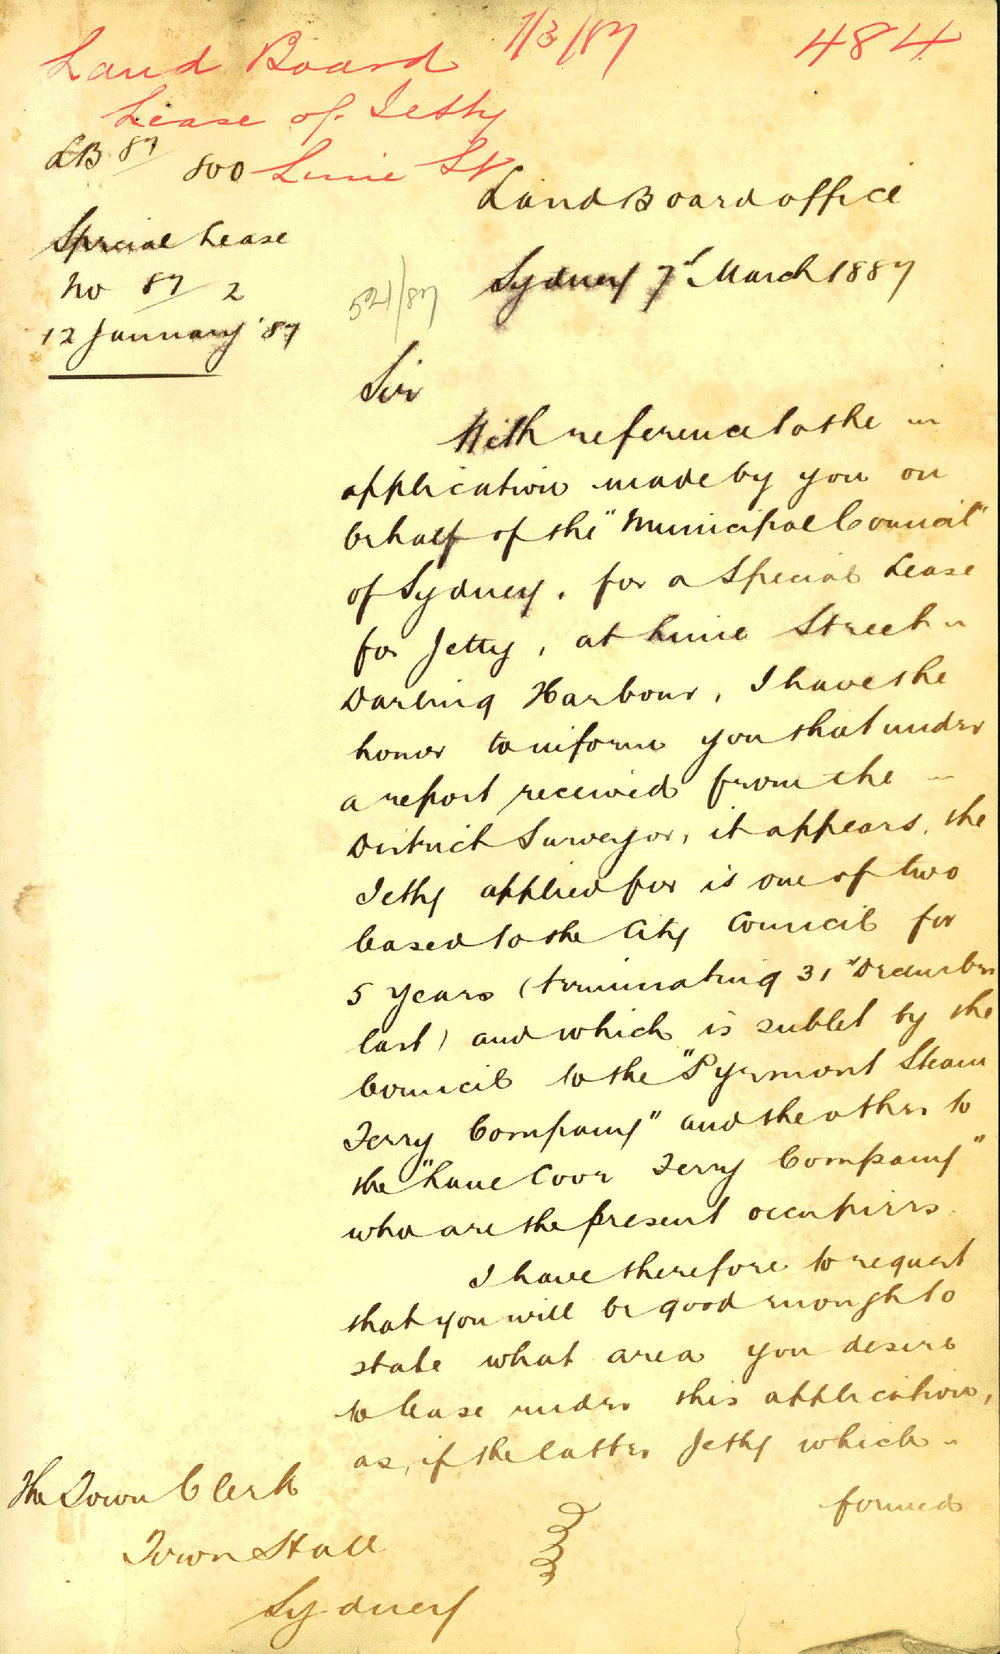 Land Board 7/3/87 484
Lease of Jetty
Lime St
LB 87/800
Land Board office
Special Lease
No 87/2
12 January '87
521/87
Sydney 7th March 1887
Sir
With reference to the
application made by you on
behalf of the "Municipal Council"
of Sydney, for a Special Lease
for Jetty, at Lime Street
Darling Harbour, I have the
honor to inform you that under
a report received from the
District Surveyor, it appears, the
Jetty applied for is one of two
leased to the City Council for
5 years (terminating 31st December
last) and which is sublet by the
Council to the "Pyrmont Steam
Ferry Company" and the other to
the "Lane Cove Ferry Company"
who are the present occupiers.
I have therefore to request
that you will be good enough to
state what area you desire
to lease under this application,
as, if the latter Jetty which
formed
The Town Clerk
Town Hall
Sydney